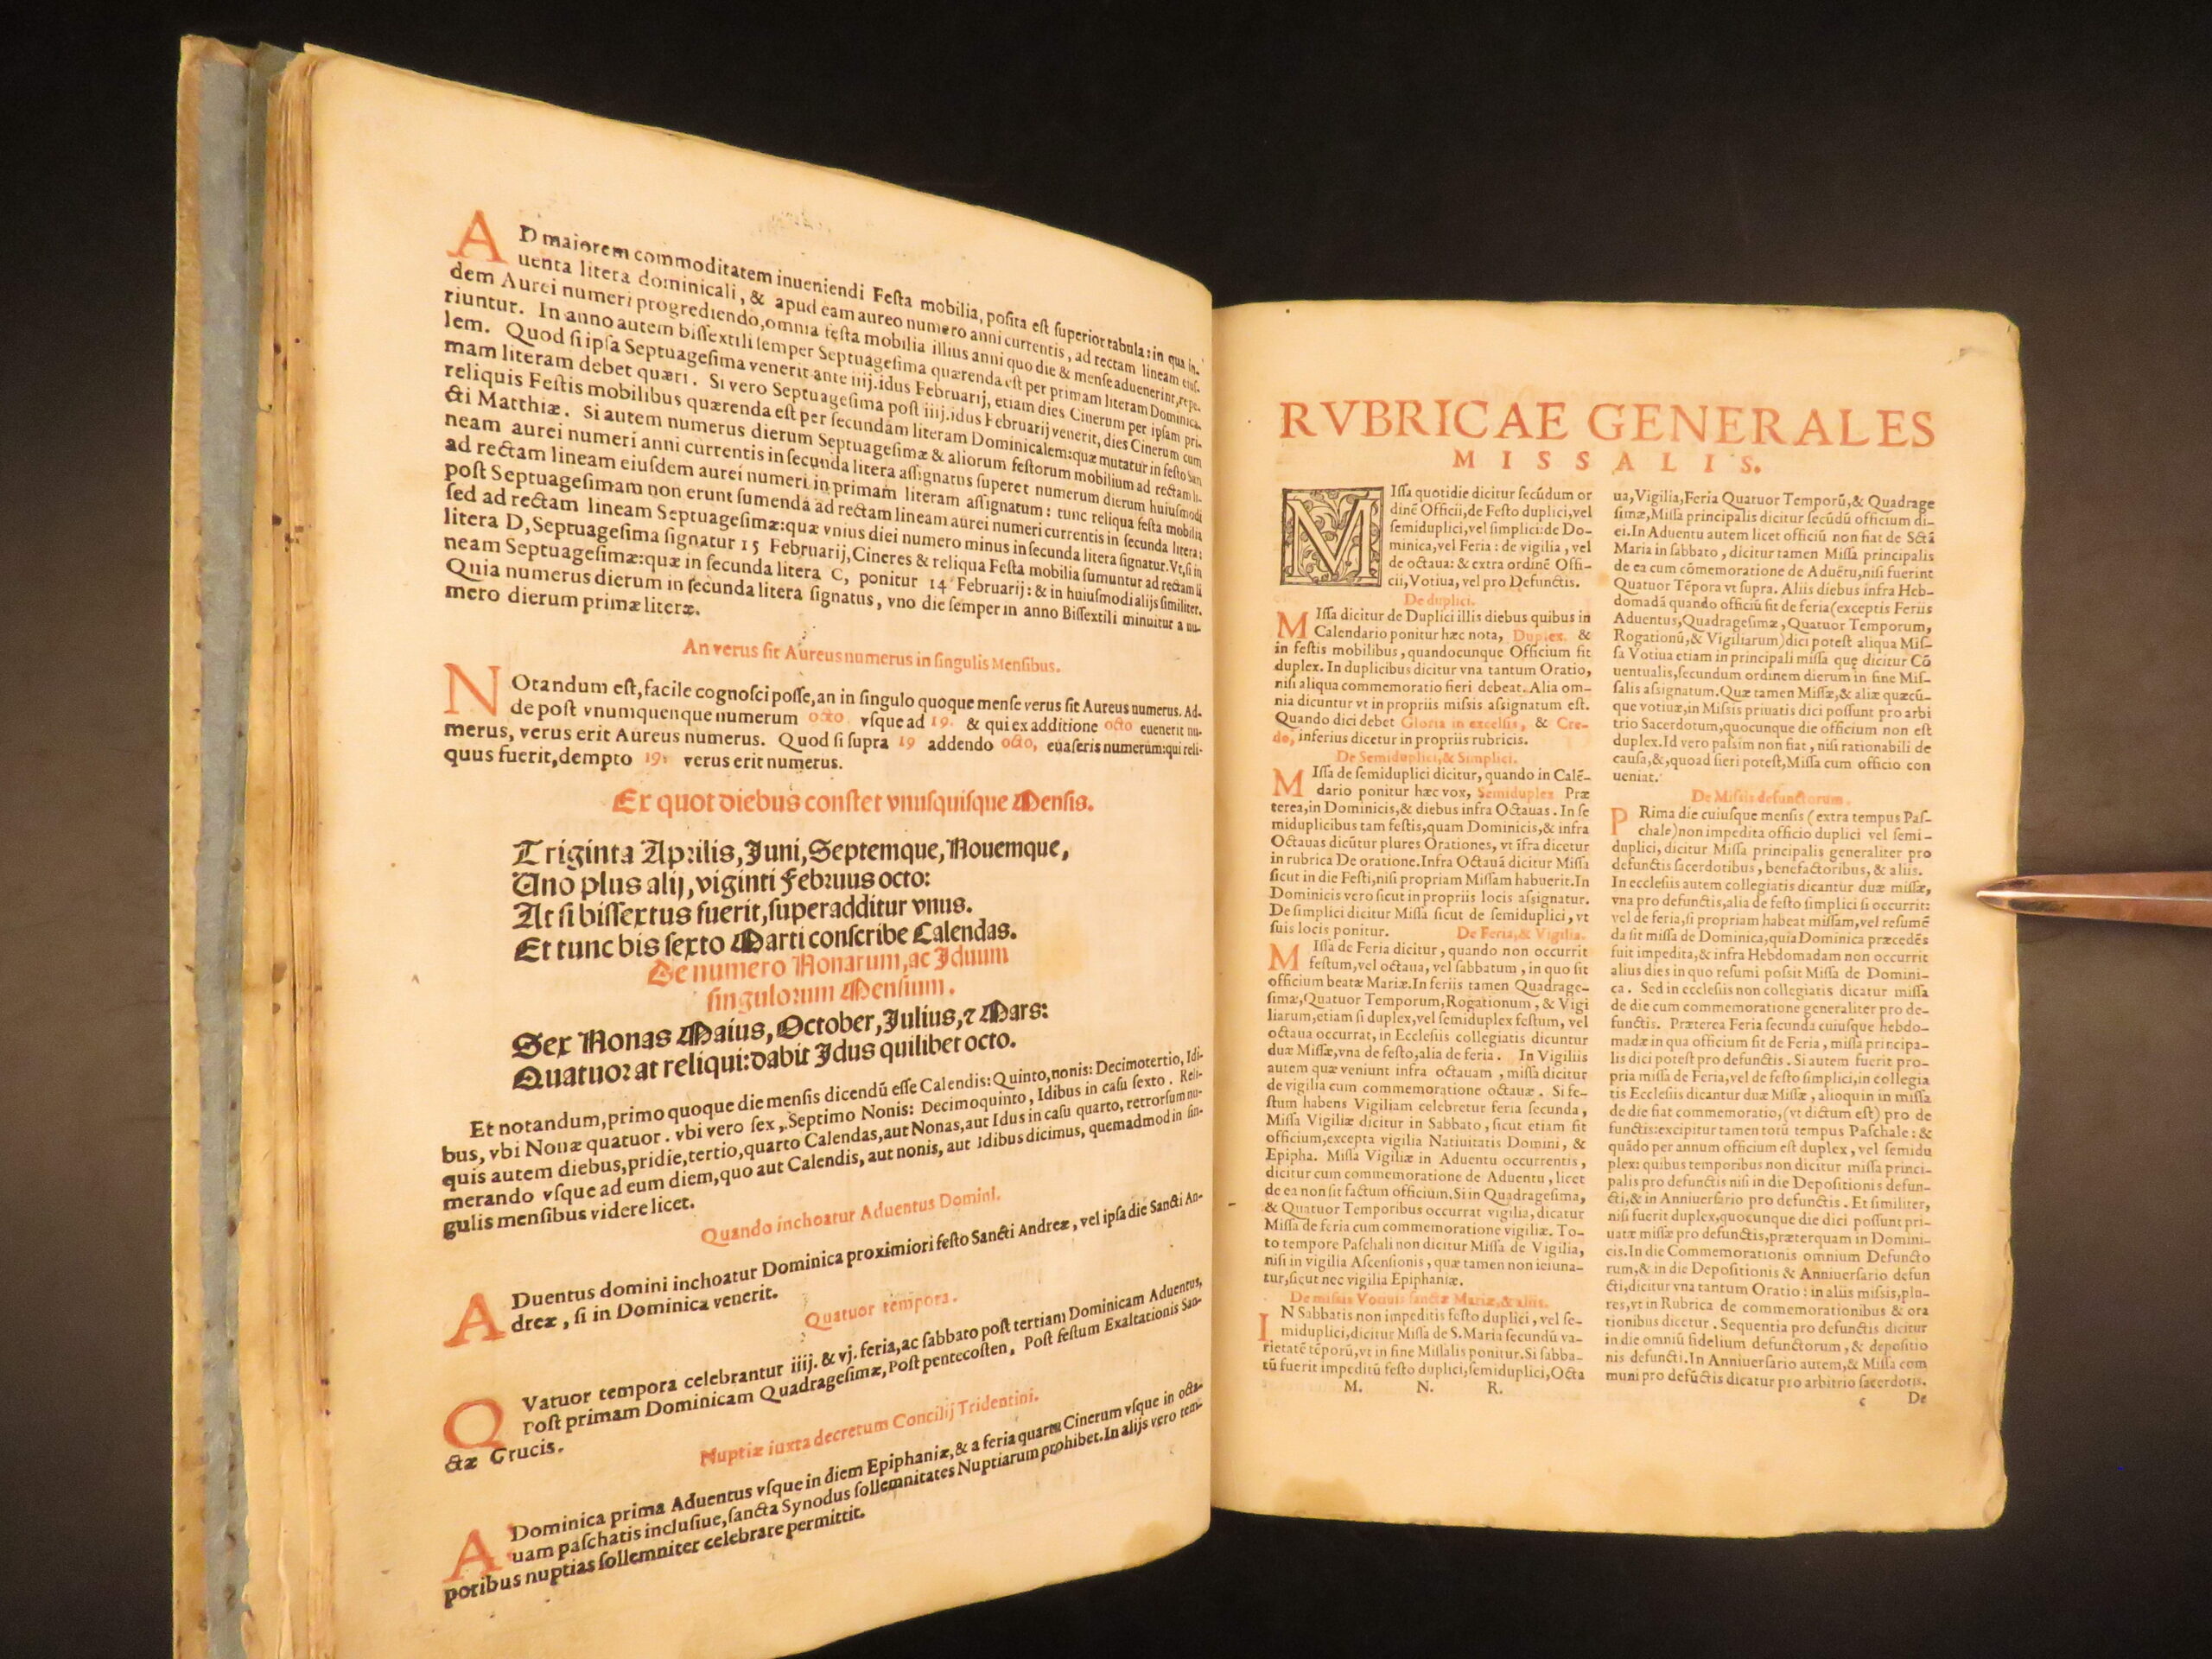 AD maiorem commoditatem inueniendi Feſta mobilia, poſita eſt ſuperior tabula: in qua in-
uenta litera dominicali, & apud eam aureo numero anni currentis, ad rectam lineam eiuſ-
dem Aurei numeri progrediendo, omnia feſta mobilia illius anni quo die & menſe aduenerint, repe-
riuntur. In anno autem biſſextili ſemper Septuageſima quærenda eſt per primam literam Dominica-
lem. Quod ſi ipſa Septuageſima venerit ante iiij. idus Februarij, etiam dies Cinerum per ipſam pri-
mam literam debet quæri. Si vero Septuageſima poſt iiij. idus Februarij venerit, dies Cinerum cum
reliquis Feſtis mobilibus quærenda eſt per ſecundam literam Dominicalem: quæ mutatur in feſto San
cti Matthiæ. Si autem numerus dierum Septuageſimæ & aliorum feſtorum mobilium ad rectam li-
neam aurei numeri anni currentis in ſecunda litera aſſignatus ſuperet numerum dierum huiuſmodi
ad rectam lineam eiuſdem aurei numeri in primam literam aſſignatum: tunc reliqua feſta mobilia
poſt Septuageſimam non erunt ſumenda ad rectam lineam aurei numeri currentis in ſecunda litera:
ſed ad rectam lineam Septuageſimæ: quæ vnius diei numero minus in ſecunda litera ſignatur. Vt, ſi in
litera D, Septuageſima ſignatur 15 Februarij, Cineres & reliqua Feſta mobilia ſumuntur ad rectam li
neam Septuageſimæ: quæ in ſecunda litera C, ponitur 14 Februarij: & in huiuſmodi alijs ſimiliter.
Quia numerus dierum in ſecunda litera ſignatus, vno die ſemper in anno Biſſextili minuitur a nu-
mero dierum primæ literæ.
An verus ſit Aureus numerus in ſingulis Menſibus.
NOtandum eſt, facile cognoſci poſſe, an in ſingulo quoque menſe verus ſit Aureus numerus. Ad-
de poſt vnumquenque numerum octo vſque ad 19. & qui ex additione octo euenerit nu-
merus, verus erit Aureus numerus. Quod ſi ſupra 19 addendo octo, euaſeris numerum: qui reli-
quus fuerit, dempto 19. verus erit numerus.
Ex quot diebus conſtet vnuſquiſque Menſis.
Triginta Aprilis, Juni, Septemque, Nouemque,
Uno plus alij, viginti Februus octo:
At ſi biſſextus fuerit, ſuperadditur vnus.
Et tunc bis ſexto Marti conſcribe Calendas.
De numero Nonarum, ac Iduum
ſingulorum Menſium.
Sex Nonas Maius, October, Julius, ⁊ Mars:
Quatuor at reliqui: dabit Idus quilibet octo.
Et notandum, primo quoque die menſis dicendũ eſſe Calendis: Quinto, nonis: Decimotertio, Idi-
bus, vbi Nonæ quatuor. vbi vero ſex, Septimo Nonis: Decimoquinto, Idibus in caſu ſexto. Reli-
quis autem diebus, pridie, tertio, quarto Calendas, aut Nonas, aut Idus in caſu quarto, retrorſum nu-
merando vſque ad eum diem, quo aut Calendis, aut nonis, aut Idibus dicimus, quemadmod in ſin-
gulis menſibus videre licet.
Quando inchoatur Aduentus Domini.
ADuentus domini inchoatur Dominica proximiori feſto Sancti Andreæ, vel ipſa die Sancti An-
dreæ, ſi in Dominica venerit.
Quatuor tempora.
QVatuor tempora celebrantur iiij. & vj. feria, ac ſabbato poſt tertiam Dominicam Aduentus,
Poſt primam Dominicam Quadrageſimæ, Poſt pentecoſten, Poſt feſtum Exaltationis San-
ctæ Crucis.
Nuptiæ iuxta decretum Concilij Tridentini.
A Dominica prima Aduentus vſque in diem Epiphaniæ, & a feria quarta Cinerum vſque in octa-
uam paſchatis incluſiue, ſancta Synodus ſollemnitates Nuptiarum prohibet. In alijs vero tem-
poribus nuptias ſollemniter celebrare permittit.
RVBRICAE GENERALES
MISSALIS.
MIſſa quotidie dicitur ſecũdum or
dinẽ Officii, de Feſto duplici, vel
ſemiduplici, vel ſimplici: de Do-
minica, vel Feria: de vigilia, vel
de octaua: & extra ordinẽ Offi-
cii, Votiua, vel pro Defunctis.
De duplici.
MIſſa dicitur de Duplici illis diebus quibus in
Calendario ponitur hæc nota, Duplex. &
in feſtis mobilibus, quandocunque Officium fit
duplex. In duplicibus dicitur vna tantum Oratio,
niſi aliqua commemoratio fieri debeat. Alia om-
nia dicuntur vt in propriis miſsis aſsignatum eſt.
Quando dici debet Gloria in excelſis, & Cre-
do, inferius dicetur in propriis rubricis.
De Semiduplici, & Simplici.
MIſſa de ſemiduplici dicitur, quando in Calẽ-
dario ponitur hæc vox, Semiduplex Præ
terea, in Dominicis, & diebus infra Octauas. In ſe
miduplicibus tam feſtis, quam Dominicis, & infra
Octauas dicũtur plures Orationes, vt ĩfra dicetur
in rubrica De oratione. Infra Octauã dicitur Miſſa
ſicut in die Feſti, niſi propriam Miſſam habuerit. In
Dominicis vero ſicut in propriis locis aſsignatur.
De ſimplici dicitur Miſſa ſicut de ſemiduplici, vt
ſuis locis ponitur. De Feria, & Vigilia.
MIſſa de Feria dicitur, quando non occurrit
feſtum, vel octaua, vel ſabbatum, in quo fit
officium beatæ Mariæ. In feriis tamen Quadrage-
ſimæ, Quatuor Temporum, Rogationum, & Vigi
liarum, etiam ſi duplex, vel ſemiduplex feſtum, vel
octaua occurrat, in Eccleſiis collegiatis dicuntur
duæ Miſſæ, vna de feſto, alia de feria. In Vigiliis
autem quæ veniunt infra octauam, miſſa dicitur
de vigilia cum commemoratione octauæ. Si fe-
ſtum habens Vigiliam celebretur feria ſecunda,
Miſſa Vigiliæ dicitur in Sabbato, ſicut etiam fit
officium, excepta vigilia Natiuitatis Domini, &
Epipha. Miſſa Vigiliæ in Aduentu occurrentis,
dicitur cum commemoratione de Aduentu, licet
de ea non ſit factum officium. Si in Quadrageſima,
& Quatuor Temporibus occurrat vigilia, dicatur
Miſſa de feria cum commemoratione vigiliæ. To-
to tempore Paſchali non dicitur Miſſa de Vigilia,
niſi in vigilia Aſcenſionis, quæ tamen non ieiuna-
tur, ſicut nec vigilia Epiphaniæ.
De miſsis Votiuis ſanctæ Mariæ, & aliis.
IN Sabbatis non impeditis feſto duplici, vel ſe-
miduplici, dicitur Miſſa de S. Maria ſecundũ va-
rietatẽ tẽporũ, vt in fine Miſſalis ponitur. Si ſabba-
tũ fuerit impeditũ feſto duplici, ſemiduplici, Octa
M. N. R.
ua, Vigilia, Feria Quatuor Temporũ, & Quadrage
ſimæ, Miſſa principalis dicitur ſecũdũ officium di-
ei. In Aduentu autem licet officiũ non fiat de Sctã
Maria in ſabbato, dicitur tamen Miſſa principalis
de ea cum cõmemoratione de Aduẽtu, niſi fuerint
Quatuor Tẽpora vt ſupra. Aliis diebus infra Heb-
domadã quando officiũ fit de feria (exceptis Feriis
Aduentus, Quadrageſimæ, Quatuor Temporum,
Rogationũ, & Vigiliarum) dici poteſt aliqua Miſ-
ſa Votiua etiam in principali miſſa quę dicitur Cõ
uentualis, ſecundum ordinem dierum in fine Miſ-
ſalis aſsignatum. Quæ tamen Miſſæ, & aliæ quæcũ-
que votiuæ, in Miſsis priuatis dici poſſunt pro arbi
trio Sacerdotum, quocunque die officium non eſt
duplex. Id vero paſsim non fiat, niſi rationabili de
cauſa, &, quoad fieri poteſt, Miſſa cum officio con
ueniat.
De Miſsis defunctorum.
PRima die cuiuſque menſis (extra tempus Paſ-
chale) non impedita officio duplici vel ſemi-
duplici, dicitur Miſſa principalis generaliter pro
defunctis ſacerdotibus, benefactoribus, & aliis.
In eccleſiis autem collegiatis dicantur duæ miſſæ,
vna pro defunctis, alia de feſto ſimplici ſi occurrit:
vel de feria, ſi propriam habeat miſſam, vel reſumẽ
da ſit miſſa de Dominica, quia Dominica præcedẽs
fuit impedita, & infra Hebdomadam non occurrit
alius dies in quo reſumi poſsit Miſſa de Domini-
ca. Sed in eccleſiis non collegiatis dicatur miſſa
de die cum commemoratione generaliter pro de-
functis. Præterea Feria ſecunda cuiuſque hebdo-
madæ in qua officium fit de Feria, miſſa principa-
lis dici poteſt pro defunctis. Si autem fuerit pro-
pria miſſa de Feria, vel de feſto ſimplici, in collegia
tis Eccleſiis dicantur duæ Miſſæ, alioquin in miſſa
de die fiat commemoratio, (vt dictum eſt) pro de
functis: excipitur tamen totũ tempus Paſchale: &
quãdo per annum officium eſt duplex, vel ſemidu
plex: quibus temporibus non dicitur miſſa princi-
palis pro defunctis niſi in die Depoſitionis defun-
cti, & in Anniuerſario pro defunctis. Et ſimiliter,
niſi fuerit duplex, quocunque die dici poſſunt pri-
uatæ miſſæ pro defunctis, præterquam in Domini-
cis. In die Commemorationis omnium Defuncto
rum, & in die Depoſitionis & Anniuerſario defun
cti, dicitur vna tantum Oratio: in aliis miſsis, plu-
res, vt in Rubrica de commemorationibus & ora
tionibus dicetur. Sequentia pro defunctis dicitur
in die omniũ fidelium defunctorum, & depoſitio
nis defuncti. In Anniuerſario autem, & Miſſa com
muni pro defũctis dicatur pro arbitrio ſacerdotis.
c De